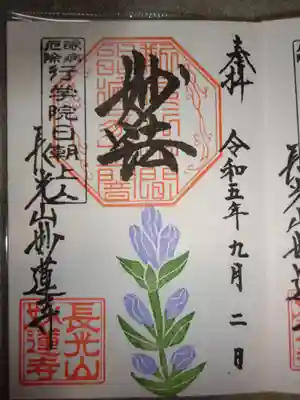 奉拝
令和五年九月二日
妙法
除病
厄除
行学院日朝上人
長光山妙蓮寺
長光山
妙蓮寺